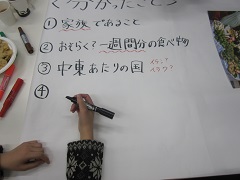 く分かったこと>
① 家族であること
② おそらく?一週間分の食べ物
③ 中東あたりの国 イラン? イラク?
④